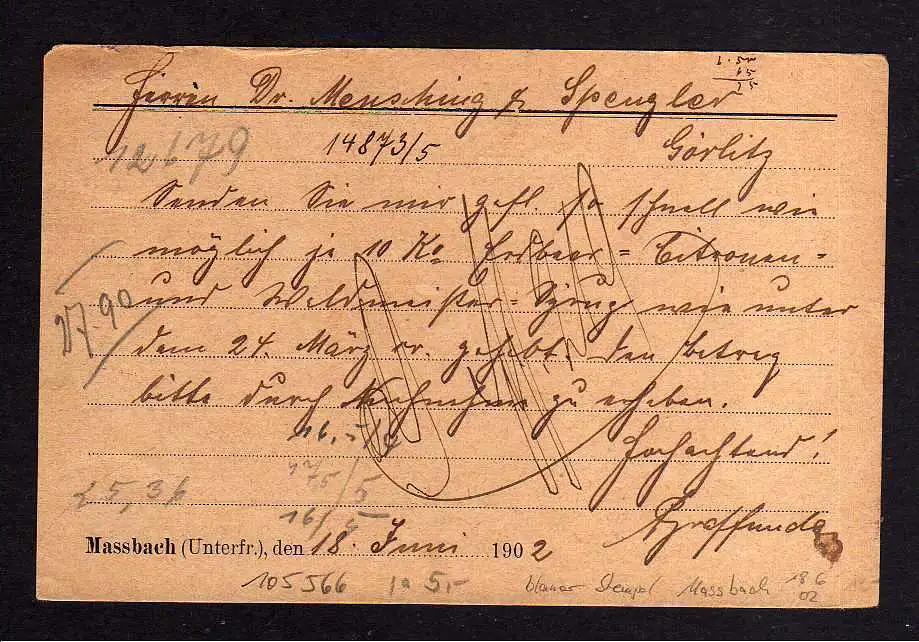 Herren Dr. Mensching & Spengler
12679 14873/5 Görlitz
Senden Sie mir gefl. so schnell wie
möglich je 10 Ko Erdbeer= Citronen=
und Waldmeister= Syrup wie unter
dem 24. März cr. gehabt. den Betrag
27.90
bitte durch Nachnahme zu erheben.
Hochachtend!
25,36
Massbach (Unterfr.), den 18. Juni 1902
105566 1a 5,- blauer Stempel Massbach 18 6 02